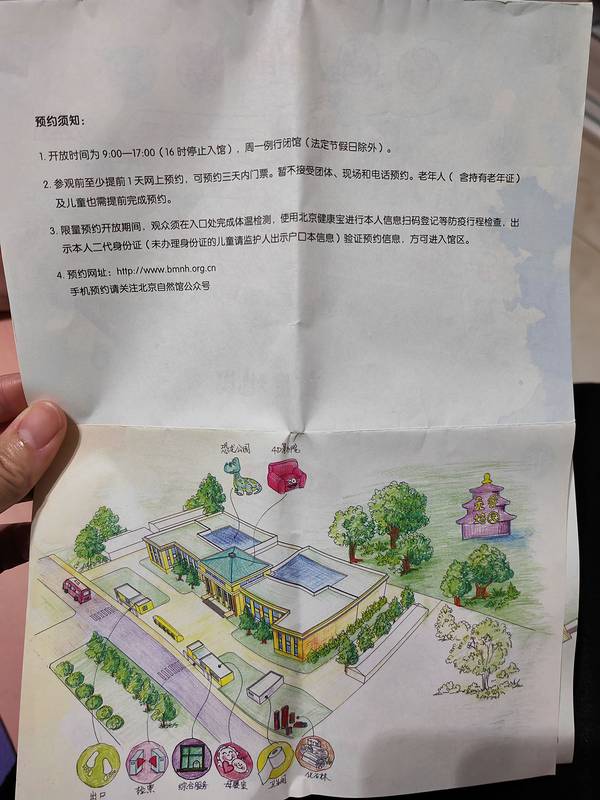 预约须知：
1. 开放时间为 9:00—17:00（16 时停止入馆），周一例行闭馆（法定节假日除外）。
2. 参观前至少提前 1 天网上预约，可预约三天内门票。暂不接受团体、现场和电话预约。老年人（ 含持有老年证）
及儿童也需提前完成预约。
3. 限量预约开放期间，观众须在入口处完成体温检测，使用北京健康宝进行本人信息扫码登记等防疫行程检查，出
示本人二代身份证（未办理身份证的儿童请监护人出示户口本信息）验证预约信息，方可进入馆区。
4. 预约网址：http://www.bmnh.org.cn
手机预约请关注北京自然馆公众号
恐龙公园 4D影院
天坛
公园
出口 检票 综合服务 母婴室 卫生间 化石林